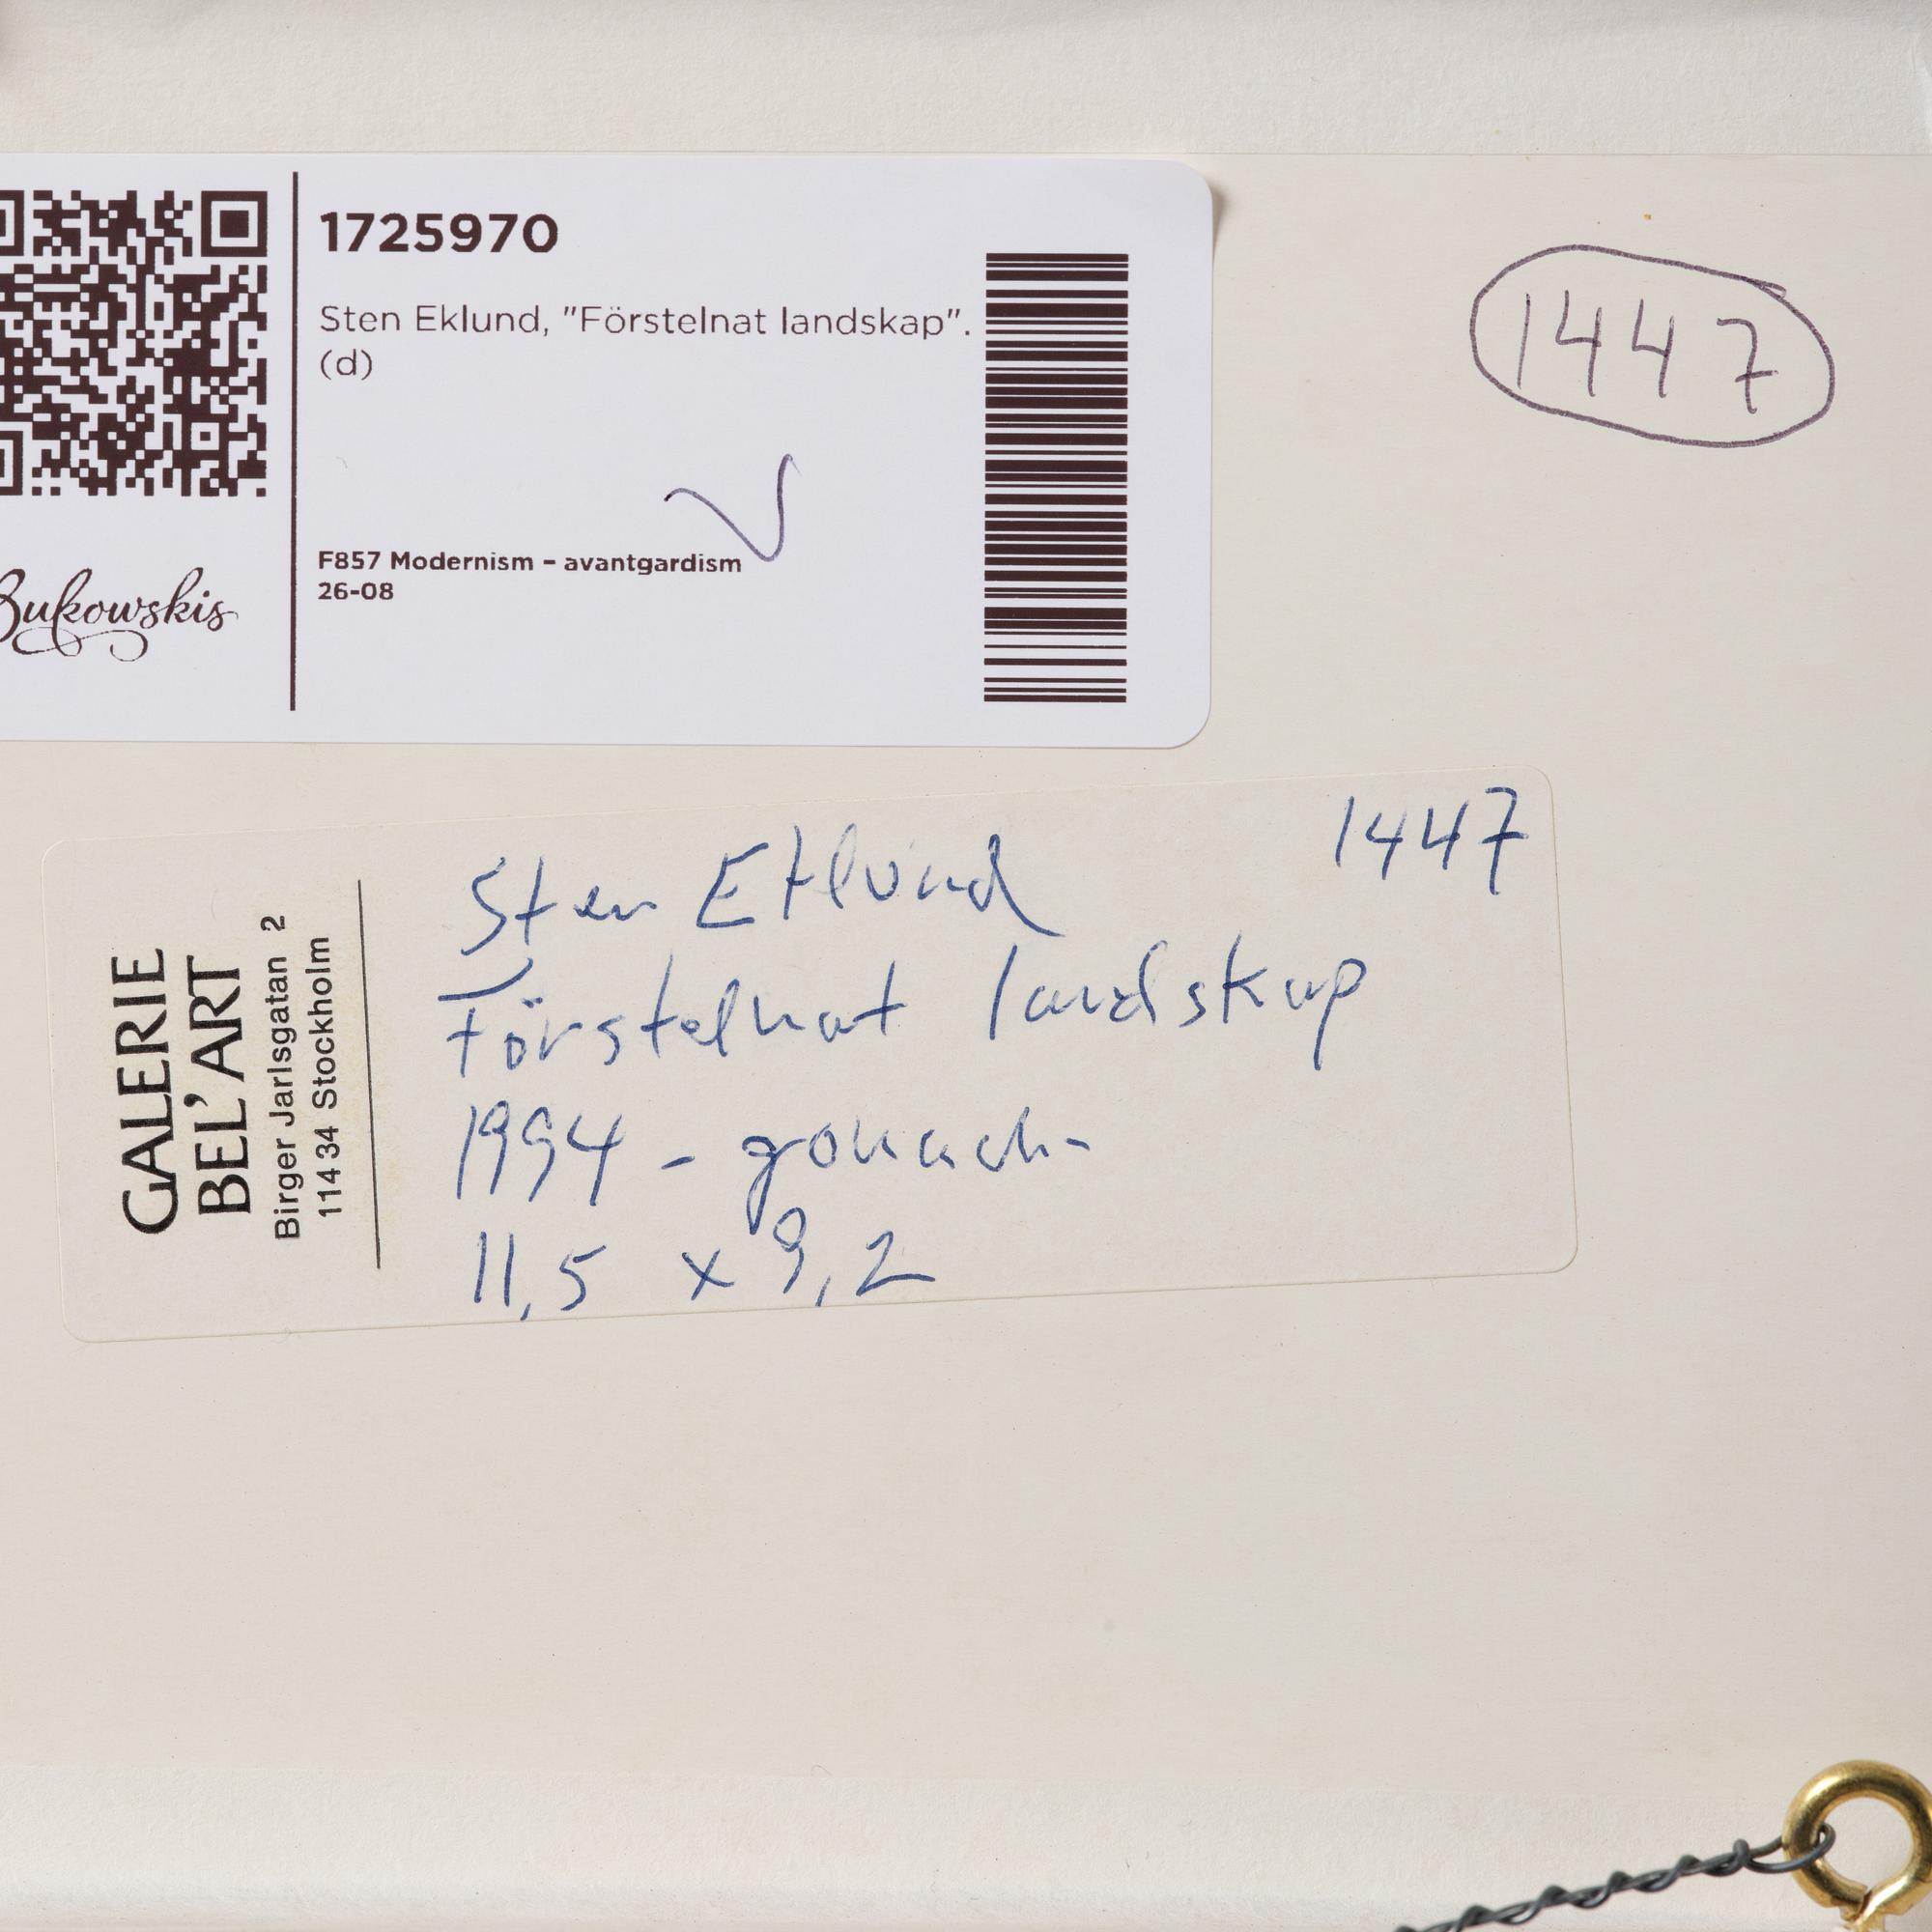 1725970
Sten Eklund, "Förstelnat landskap".
(d)
F857 Modernism – avantgardism
26-08
Bukowskis
1447
GALERIE
BEL'ART
Birger Jarlsgatan 2
114 34 Stockholm
1447
Sten Eklund
Förstelnat landskap
1994 - gouach
11,5 x 9,2